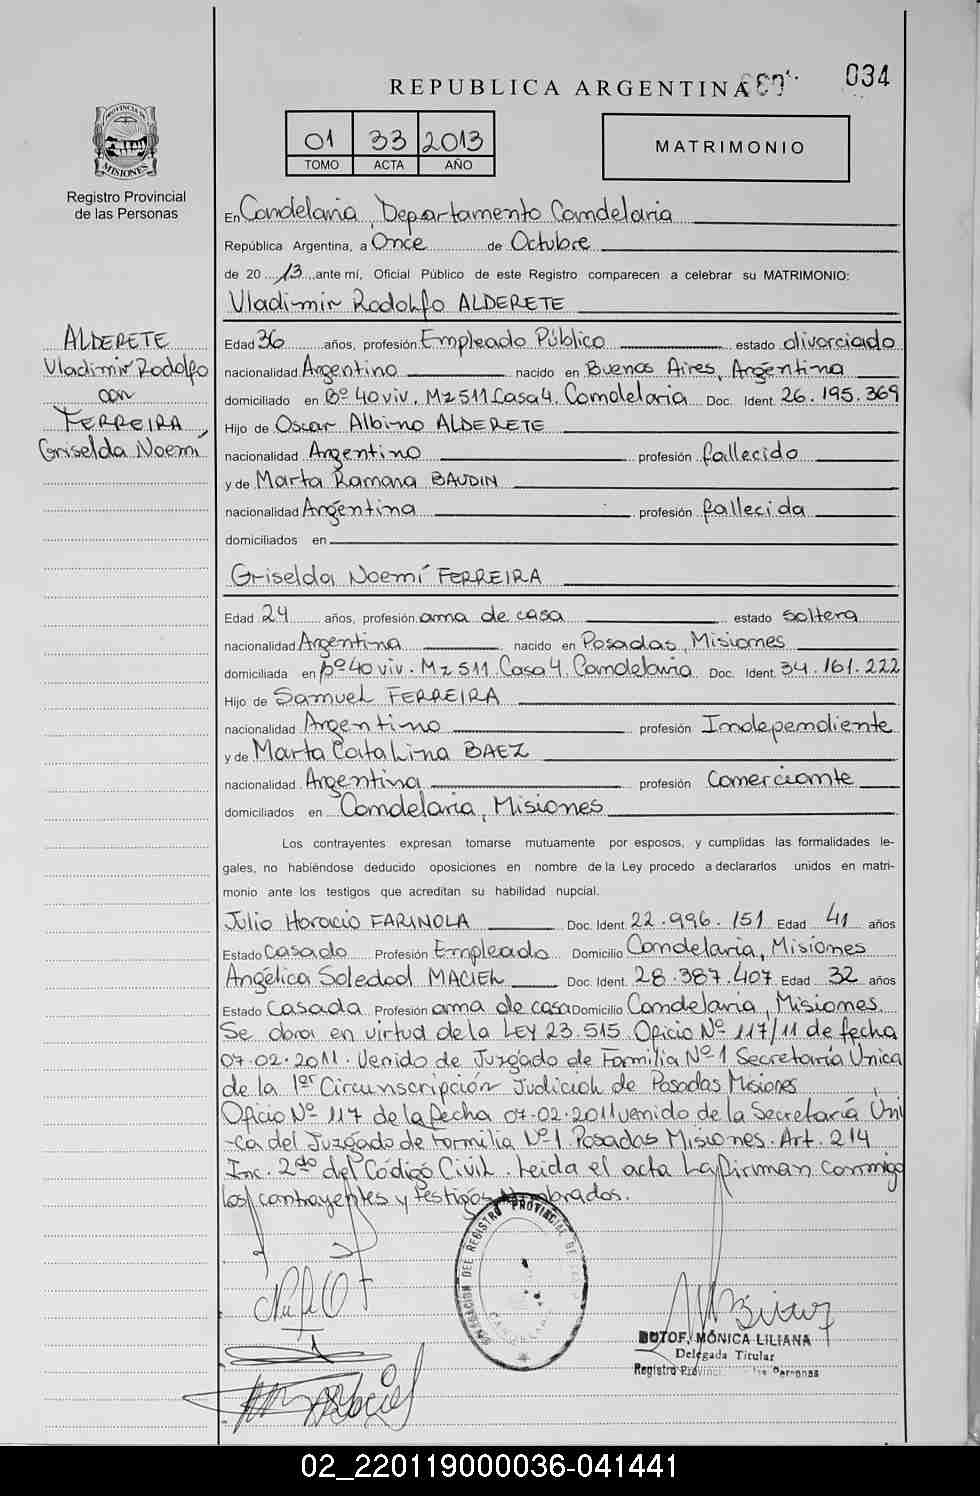 REPUBLICA ARGENTINA
034
01 33 2013
TOMO ACTA AÑO
MATRIMONIO
PROVINCIA DE MISIONES
Registro Provincial
de las Personas
En Candelaria, Departamento Candelaria
República Argentina, a Once de Octubre
de 20 13 ante mí, Oficial Público de este Registro comparecen a celebrar su MATRIMONIO:
Vladimir Rodolfo ALDERETE
ALDERETE
Vladimir Rodolfo
con
FERREIRA,
Griselda Noemí
Edad 36 años, profesión Empleado Público estado divorciado
nacionalidad Argentino nacido en Buenos Aires, Argentina
domiciliado en Bº 40 viv. Mz 511 Casa 4. Candelaria Doc. Ident. 26.195.369
Hijo de Oscar Albino ALDERETE
nacionalidad Argentino profesión fallecido
y de Marta Ramona BAUDIN
nacionalidad Argentina profesión fallecida
domiciliados en
Griselda Noemí FERREIRA
Edad 24 años, profesión ama de casa estado soltera
nacionalidad Argentina nacido en Posadas, Misiones
domiciliada en Bº 40 viv. Mz 511 Casa 4. Candelaria Doc. Ident. 34.161.222
Hijo de Samuel FERREIRA
nacionalidad Argentino profesión Independiente
y de Marta Catalina BAEZ
nacionalidad Argentina profesión Comerciante
domiciliados en Candelaria, Misiones
Los contrayentes expresan tomarse mutuamente por esposos, y cumplidas las formalidades le-
gales, no habiéndose deducido oposiciones en nombre de la Ley procedo a declararlos unidos en matri-
monio ante los testigos que acreditan su habilidad nupcial.
Julio Horacio FARINOLA Doc. Ident. 22.996.151 Edad 41 años
Estado Casado Profesión Empleado Domicilio Candelaria, Misiones
Angélica Soledad MACIEL Doc. Ident. 28.387.407 Edad 32 años
Estado Casada Profesión ama de casa Domicilio Candelaria, Misiones.
Se obra en virtud de la LEY 23.515 Oficio Nº 117/11 de fecha
07.02.2011. Venido de Juzgado de Familia Nº 1 Secretaría Única
de la 1er Circunscripción Judicial de Posadas Misiones
Oficio Nº 117 de la fecha 07.02.2011 venido de la Secretaría Úni
-ca del Juzgado de Familia Nº 1 Posadas Misiones. Art. 214
Inc. 2do del Código Civil. Leida el acta la firman conmigo
los contrayentes y testigos nombrados.
DELEGACION DEL REGISTRO PROVINCIAL DE LAS
BUTOF, MÓNICA LILIANA
Delegada Titular
Registro Provinci las Personas
02_220119000036-041441